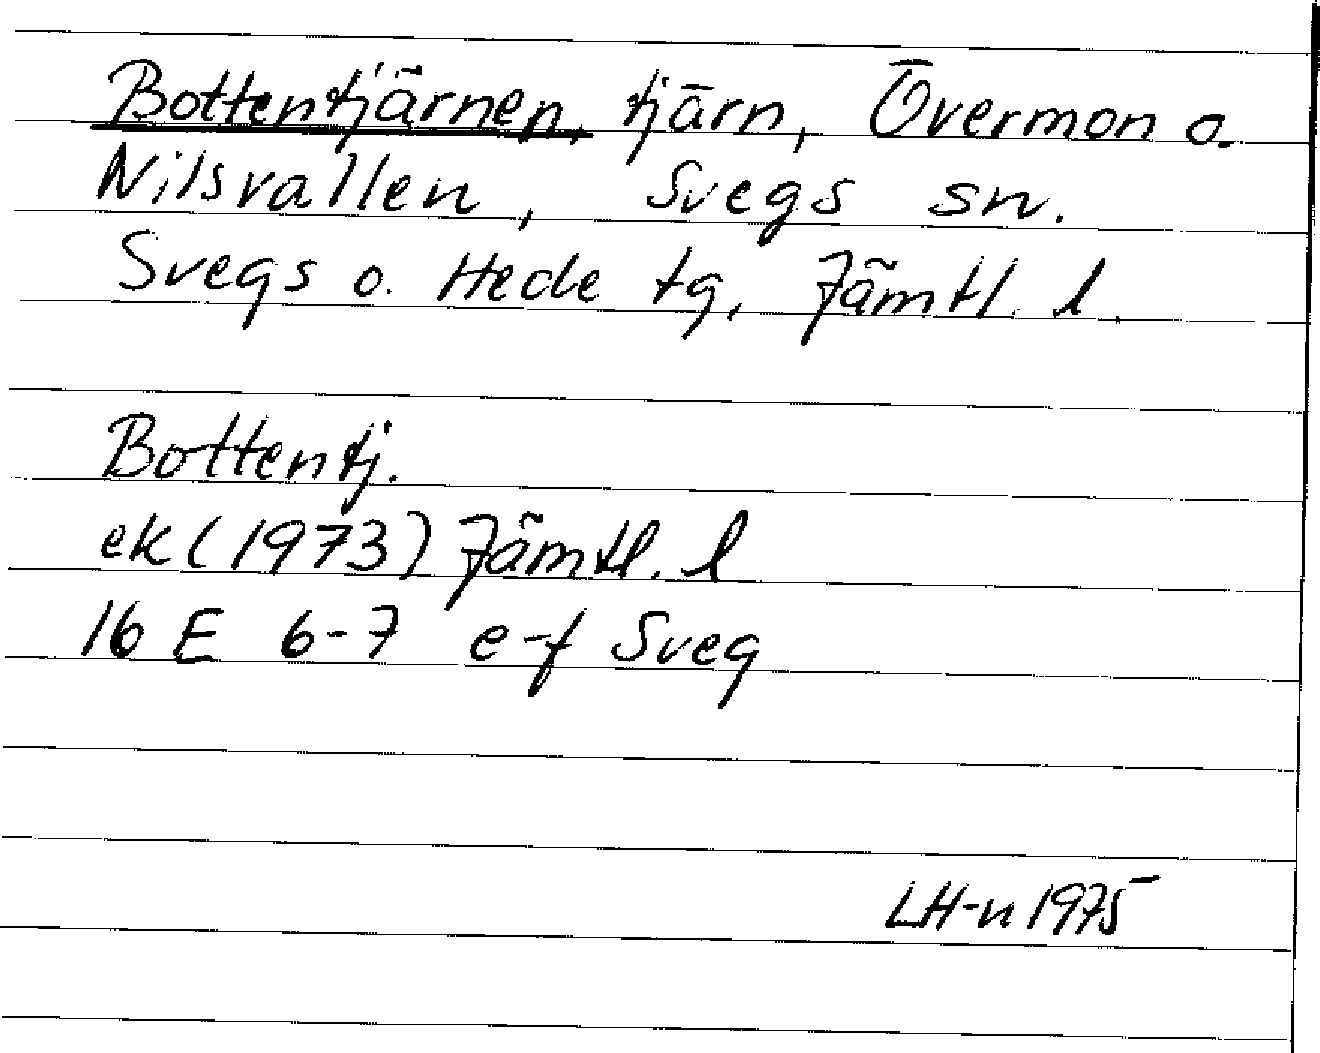 Bottentjärnen, tjärn, Övermon o.
Nilsvallen, Svegs sn.
Svegs o. Hede tg, Jämtl. l.
Bottentj.
ek (1973) Jämtl. l
16 E 6-7 e-f Sveg
LH-n 1975